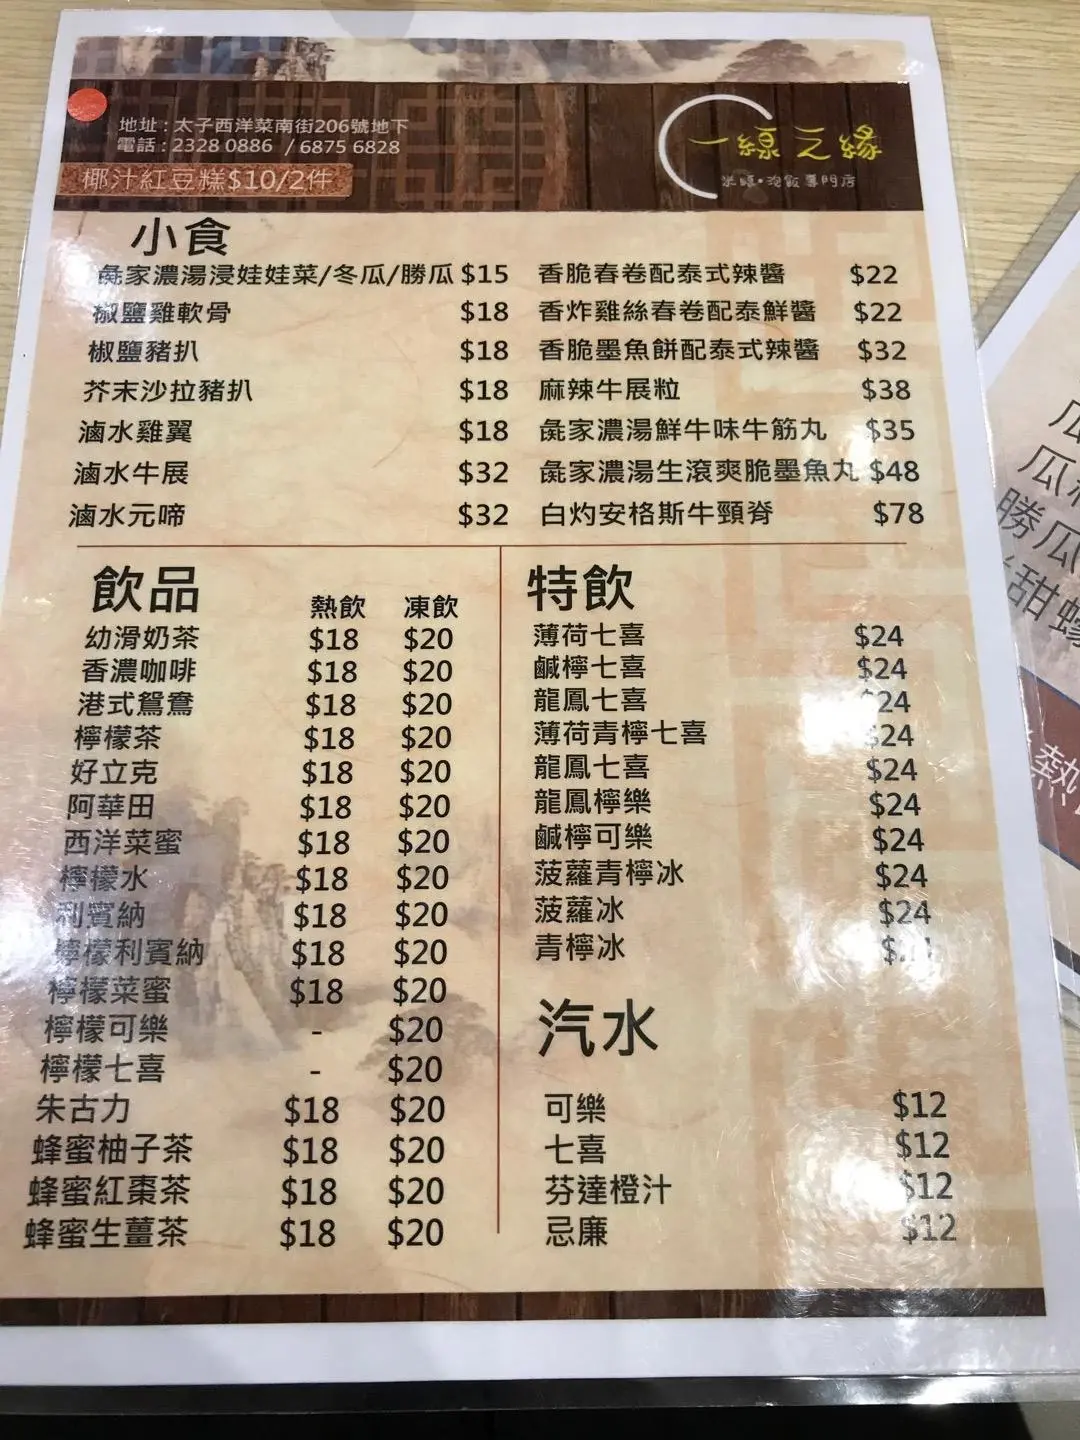 地址 : 太子西洋菜南街206號地下
電話 : 2328 0886 / 6875 6828
椰汁紅豆糕$10/2件
一線之緣
米線•泡飯專門店
小食
彘家濃湯浸娃娃菜/冬瓜/勝瓜 $15
椒鹽雞軟骨 $18
椒鹽豬扒 $18
芥末沙拉豬扒 $18
滷水雞翼 $18
滷水牛展 $32
滷水元啼 $32
香脆春卷配泰式辣醬 $22
香炸雞絲春卷配泰鮮醬 $22
香脆墨魚餅配泰式辣醬 $32
麻辣牛展粒 $38
彘家濃湯鮮牛味牛筋丸 $35
彘家濃湯生滾爽脆墨魚丸 $48
白灼安格斯牛頸脊 $78
飲品 熱飲 凍飲
幼滑奶茶 $18 $20
香濃咖啡 $18 $20
港式鴛鴦 $18 $20
檸檬茶 $18 $20
好立克 $18 $20
阿華田 $18 $20
西洋菜蜜 $18 $20
檸檬水 $18 $20
利賓納 $18 $20
檸檬利賓納 $18 $20
檸檬菜蜜 $18 $20
檸檬可樂 - $20
檸檬七喜 - $20
朱古力 $18 $20
蜂蜜柚子茶 $18 $20
蜂蜜紅棗茶 $18 $20
蜂蜜生薑茶 $18 $20
特飲
薄荷七喜 $24
鹹檸七喜 $24
龍鳳七喜 $24
薄荷青檸七喜 $24
龍鳳七喜 $24
龍鳳檸樂 $24
鹹檸可樂 $24
菠蘿青檸冰 $24
菠蘿冰 $24
青檸冰
汽水
可樂 $12
七喜 $12
芬達橙汁 $12
忌廉 $12
瓜
勝瓜
甜
熱